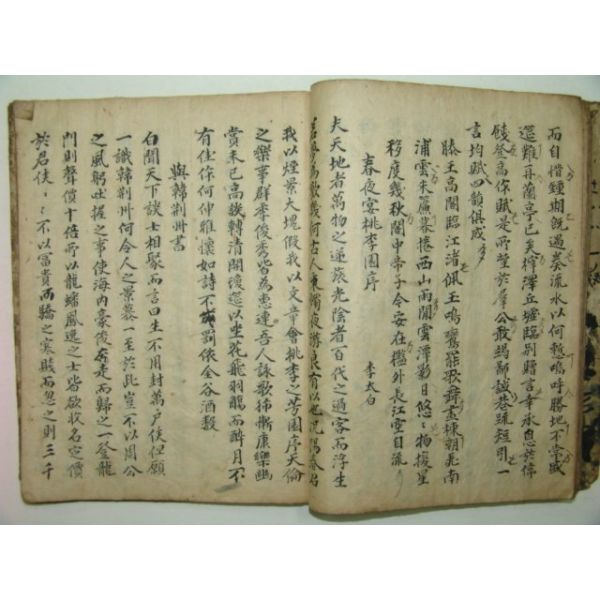 而自惜鍾期旣遇奏流水以何慙嗚呼勝地不常盛
筵難再蘭亭已矣梓澤丘墟臨別贈言幸承恩於偉
餞登高作賦是所望於羣公敢竭鄙疏短引一
言均賦四韻俱成
滕王高閣臨江渚佩玉鳴鸞罷歌舞畫棟朝飛南
浦雲朱簾暮捲西山雨閑雲潭影日悠〻物換星
移度幾秋閣中帝子今安在檻外長江空自流
春夜宴桃李園序 李太白
夫天地者萬物之逆旅光陰者百代之過客而浮生
若夢爲歡幾何古人秉燭夜遊良有以也況陽春召
我以煙景大塊假我以文章會桃李之芳園序天倫
之樂事群季俊秀皆爲惠連吾人詠歌獨慚康樂幽
賞未已高談轉清開瓊筵以坐花飛羽觴而醉月不
有佳作何伸雅懷如詩不成罰依金谷酒數
與韓荊州書
白聞天下談士相聚而言曰生不用封萬戶侯但願
一識韓荊州何令人之景慕一至於此豈不以周公
之風躬吐握之事使海內豪俊奔走而歸之一登龍
門則聲價十倍所以龍蟠鳳逸之士皆欲收名定價
於君侯〻〻不以富貴而驕之寒賤而忽之則三千